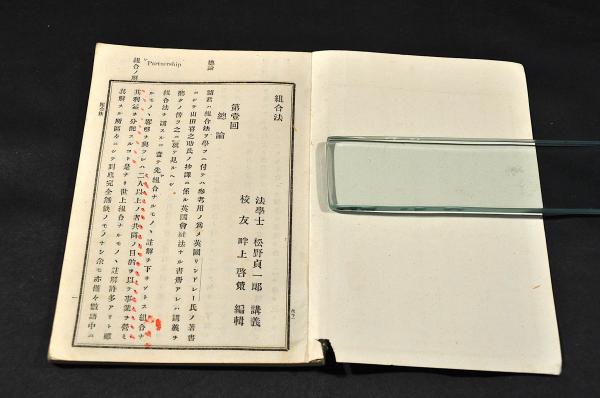 組合法
法學士 松野貞一郎 講義
校友 畔上啓策 編輯
第壹回
總論
諸君ハ組合法ヲ學フニ付テハ參考用ノ爲メ英國リンドレー氏ノ著書
ニシテ山田喜之助氏ノ抄譯ニ係ル英國會社法ナル書册アレハ講義ヲ
聽クノ傍ラ之ニ就テ見ルヘシ
組合法ヲ講スルニ當テ先組合ナルモノヽ註解ヲ下サヾトス組合ナ
ルモノヽ
ハ二人以上ノ者共同ノ目的ヲ以テ事業ヲ營ミ
其利益ヲ分配スルコト是ナリ世上組合ナルモノヽ註解許多アリト雖
モ
ニシテ到底完全無缺ノモノナシ余モ亦
總論
Partnership
組合ノ解